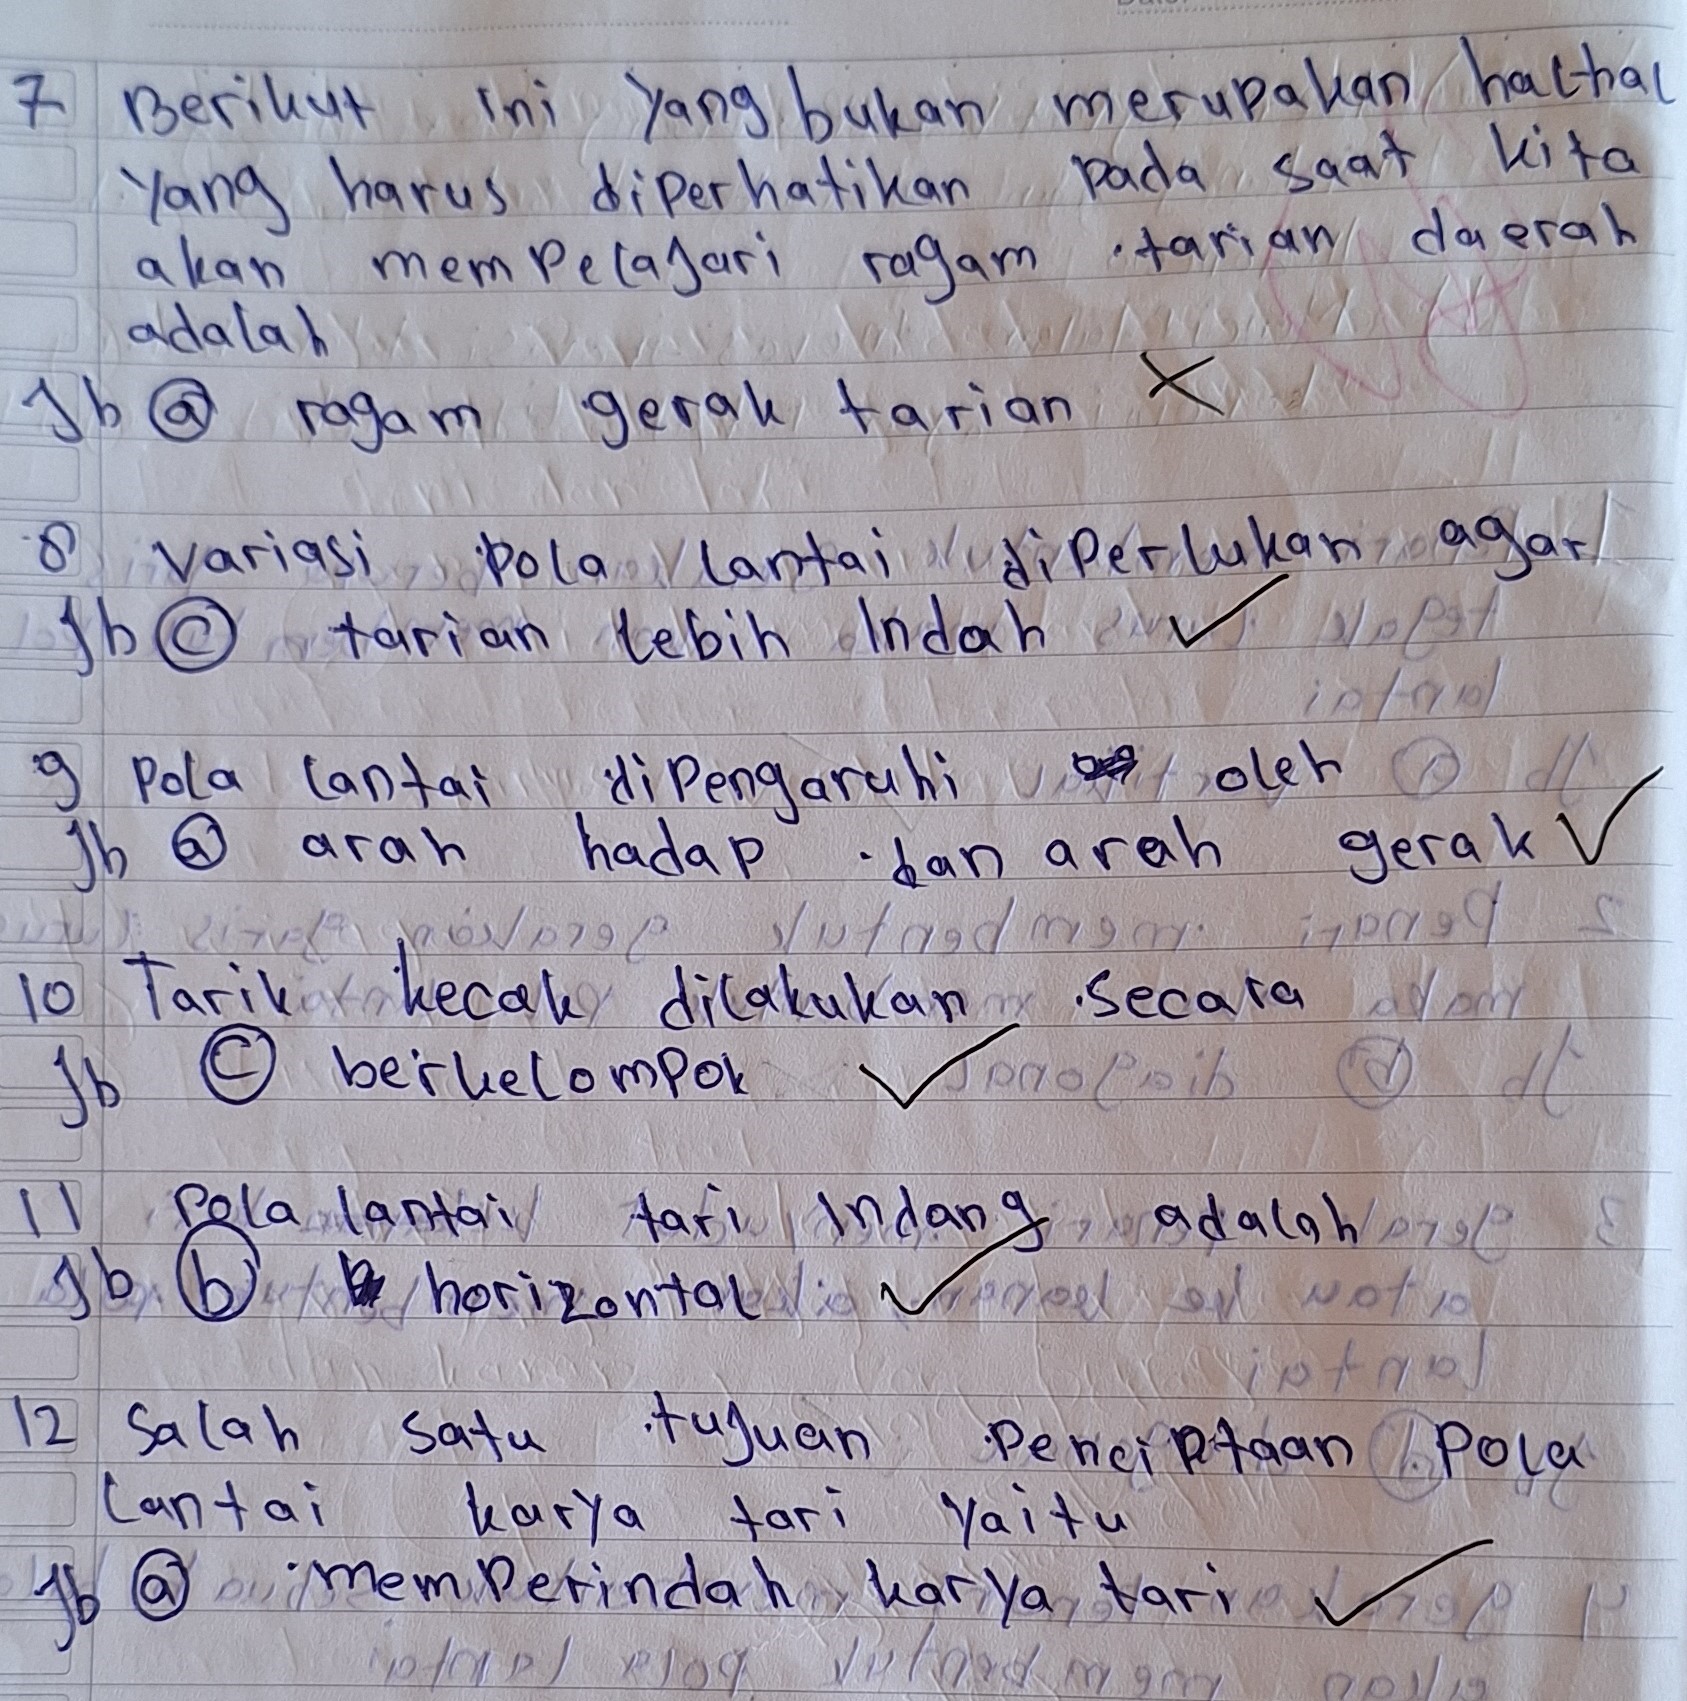 7 Berikut ini yang bukan merupakan hal-hal
yang harus diperhatikan pada saat kita
akan mempelajari ragam tarian daerah
adalah
Jb ⓐ ragam gerak tarian ✗
8 Variasi pola lantai diperlukan agar
Jb ⓒ tarian lebih Indah ✓
9 Pola lantai dipengaruhi oleh
Jb ⓐ arah hadap dan arah gerak ✓
10 Tarik kecak dilakukan secara
Jb ⓒ berkelompok ✓
11 Pola lantai tari Indang adalah
Jb ⓑ horizontal ✓
12 Salah satu tujuan penciptaan pola
lantai karya tari yaitu
Jb ⓐ memperindah karya tari ✓